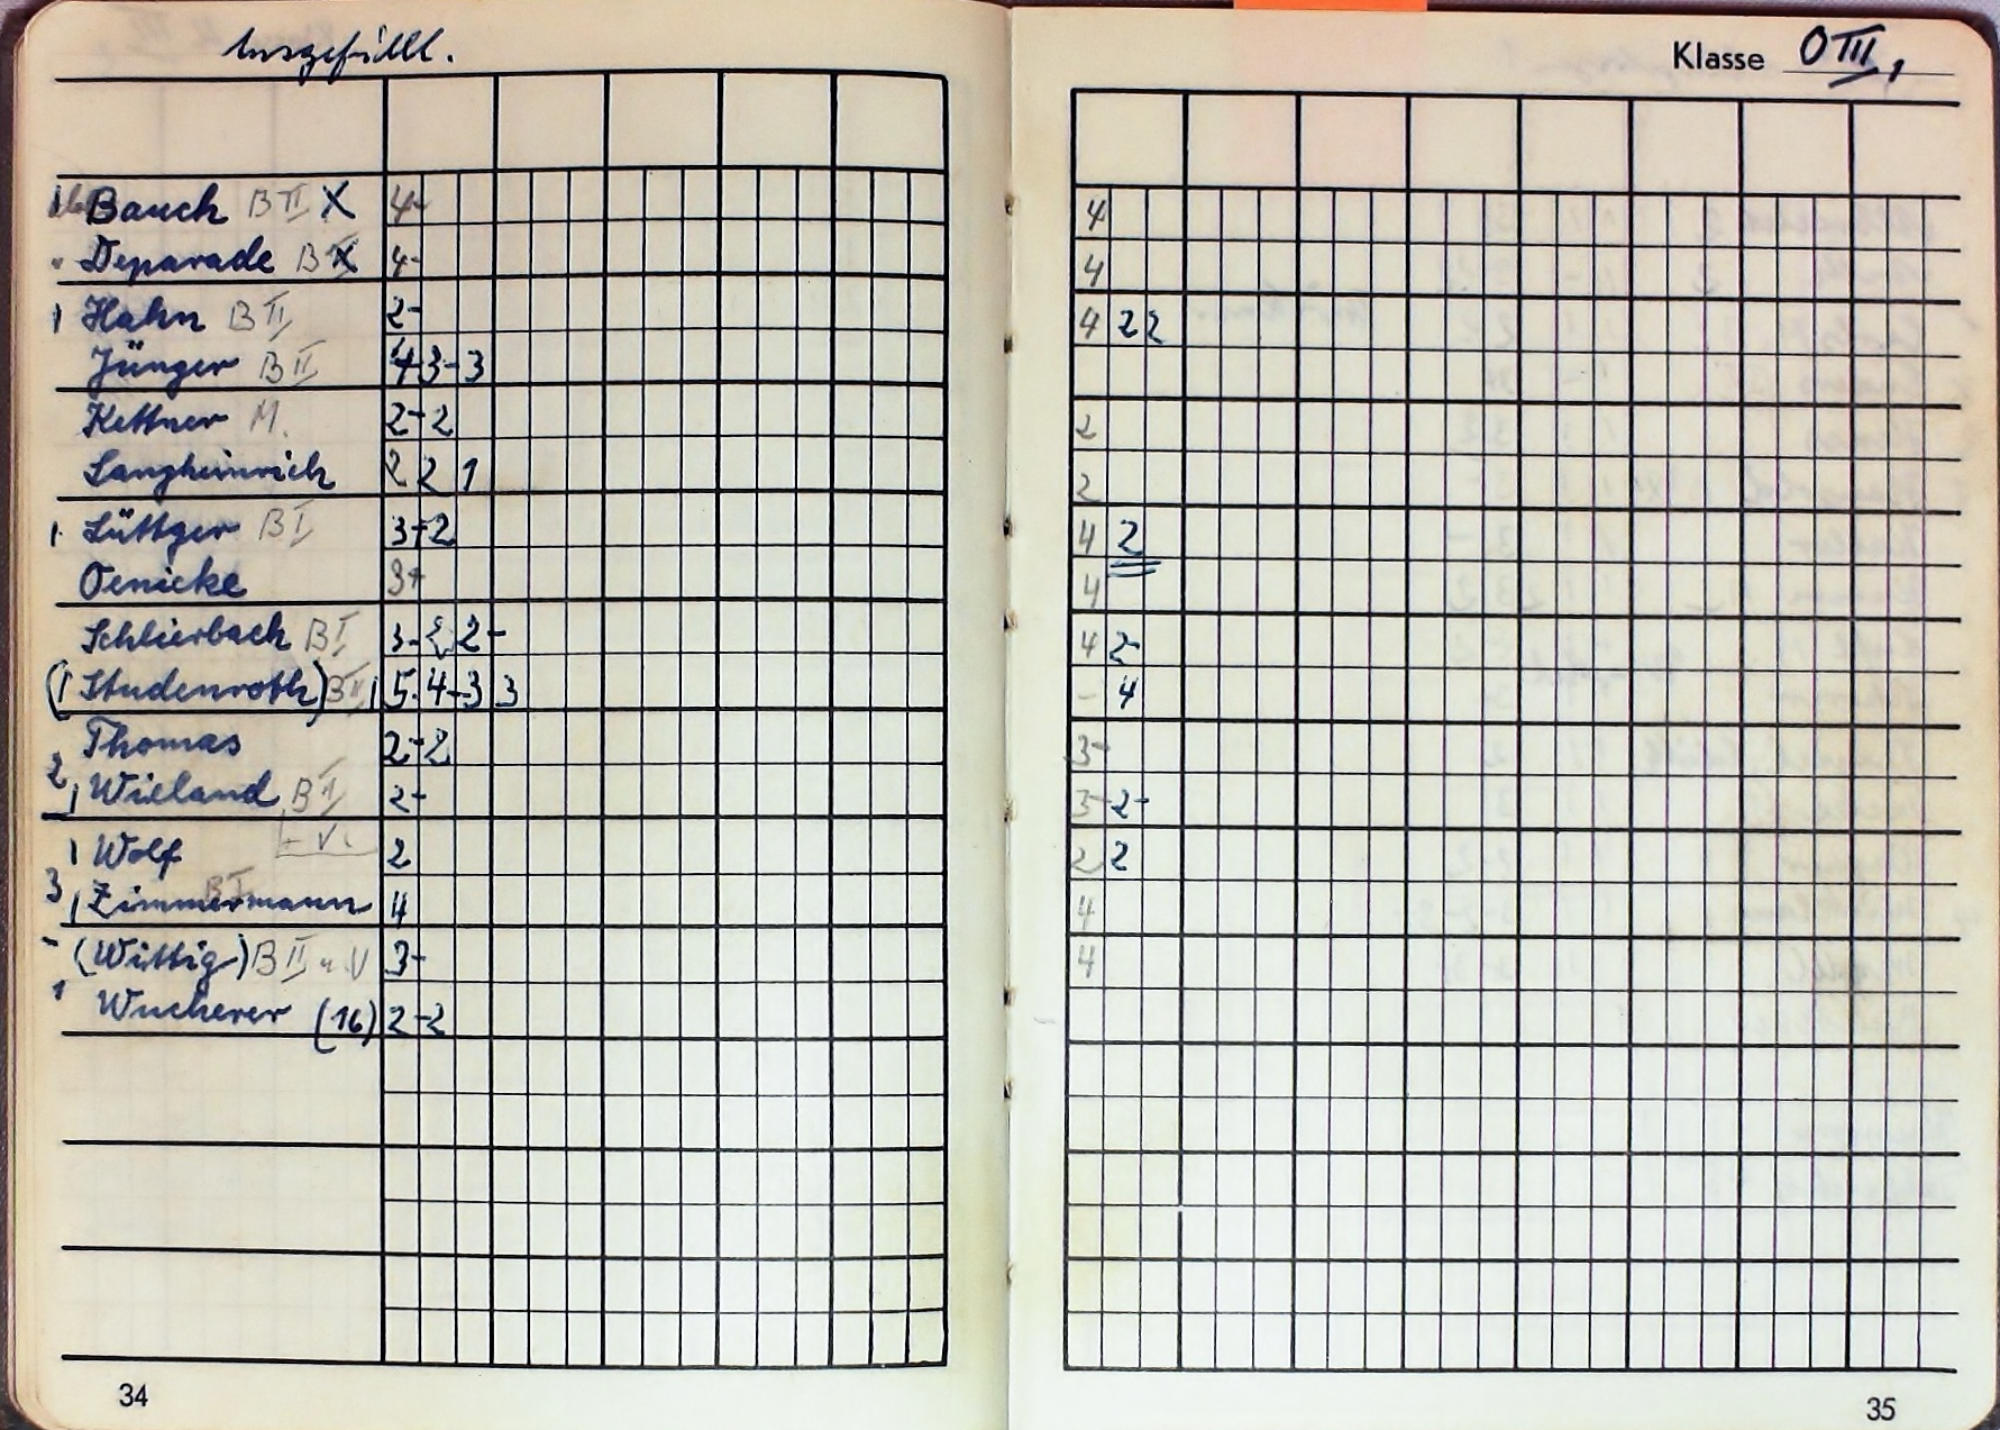 Ausgefüllt.
Klasse OIII,
Bauch B II X 4- 4
Deparade B II X 4- 4
1 Hahn B II 2- 4 2 2
Jünger B II 4 3-3
Kettner M. 2-2 2
Langheinrich 2 2 1 2
1. Lüttger B I 3+2 4 2
Oenicke 3+ 4
Schlierbach B I 3- 2 2- 4 2-
(1 Studenroth) B II 5. 4-3 3 - 4
Thomas 2-2 3-
2
1 Wieland B I 2- 3-2-
- V.
1 Wolf 2 2 2
3
1 Zimmermann B I 4 4
- (Wittig) B II u. V 3- 4
1 Wucherer (16) 2-2
34
35